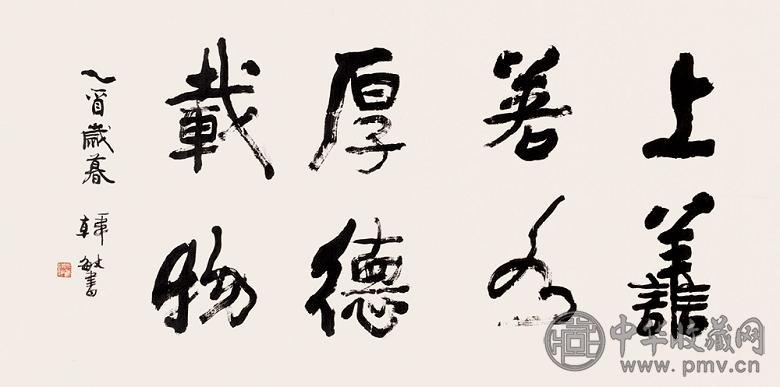 上譱
若水
厚德
載物
乙酉歲暮 韓敏書
中华收藏网
www.pmv.cn